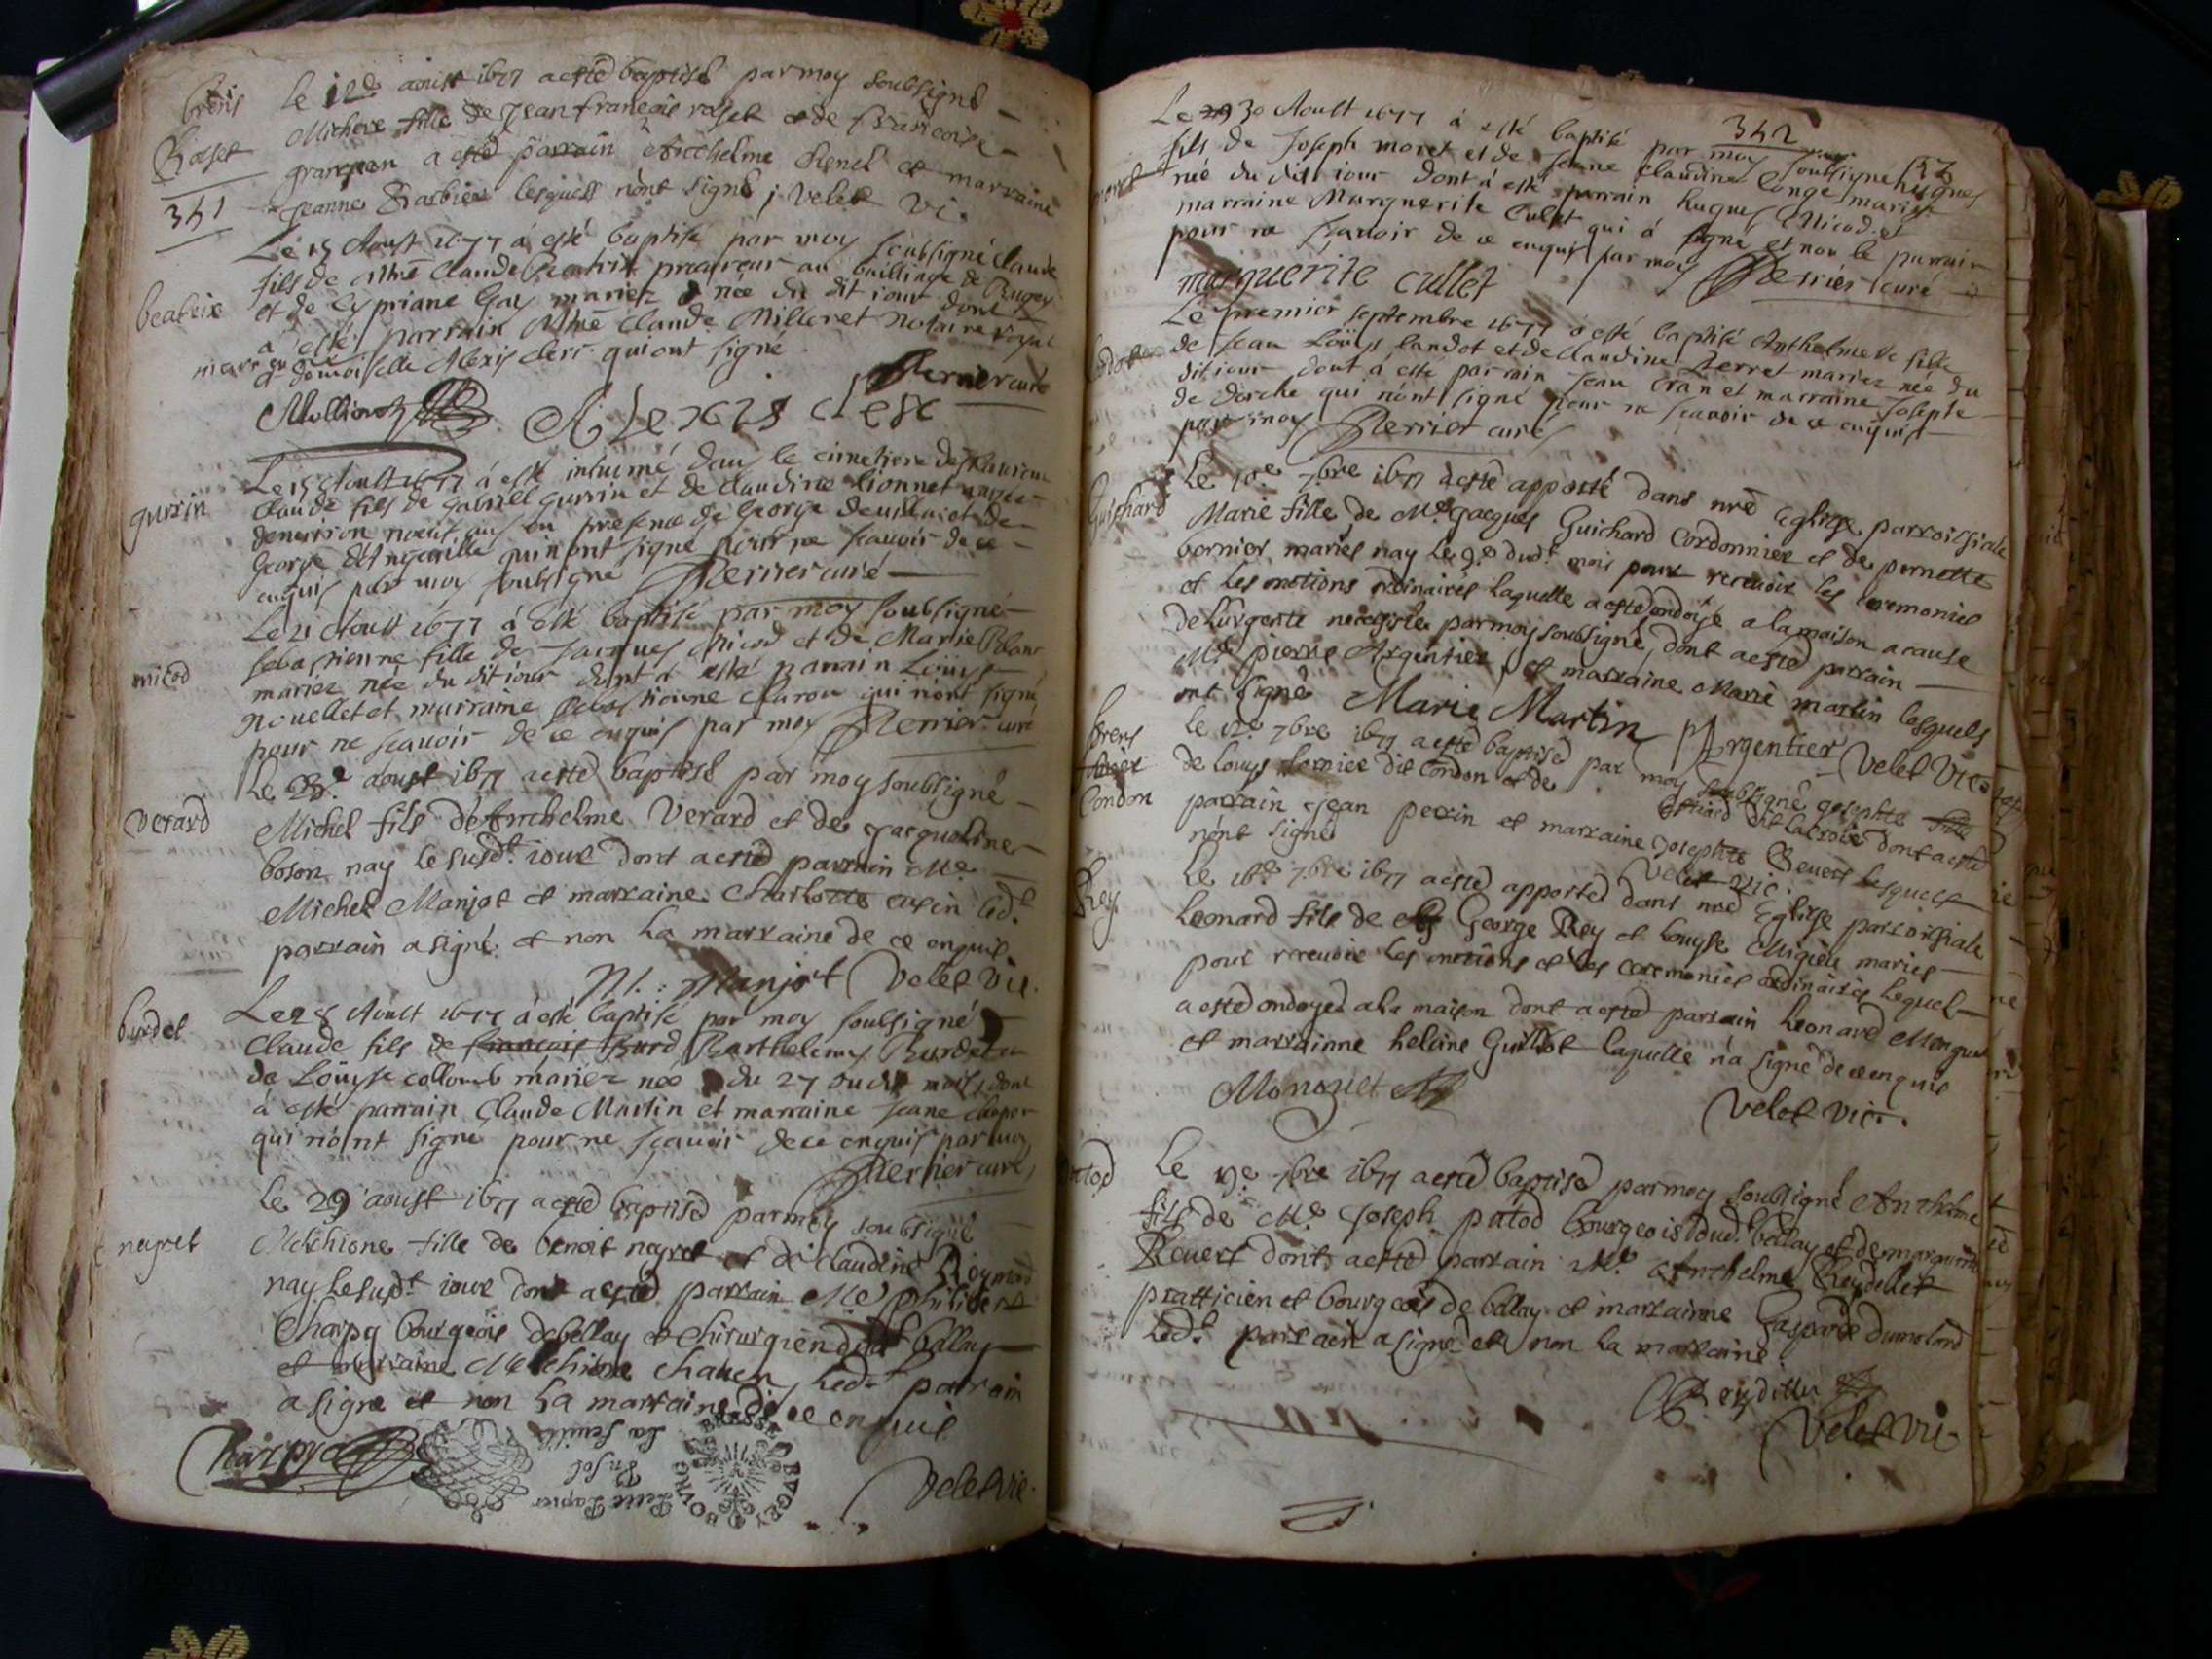 brens
Rosset
341
Le 12e aoust 1677 a esté baptisé par moy soubsigné
Micheve fille de Jean françois rosset et de françoise
granjean a esté parrain Anthelme Renel et marraine
Jeanne Barbier lesquels nont signé ; Velet Vi.
beatrix
Le 15 Aoust 1677 á esté baptisé par moy soubsigné Claude
fils de Mtre Claude Beatrix procureur au bailliage de Bugey
et de Cypriane Gay mariez née du dit jour dont
á esté parrain Mtre Claude Milleret Notaire royal
marraine
et damoiselle Alexis clerc qui ont signé
Perrier curé
Alexis clerc
gurrin
Le 15 Aoust 1677 á esté inhumé dans le cimetiere de St laurent
Claude fils de gabriel gurrin et de claudine lionnet
denviron neuf ans en presence de George
George qui nont signé pour ne sçavoir de ce
enquis par moy soubsigné Perrier curé
nicod
Le 21 Aoust 1677 á esté baptisé par moy soubsigné
sebastienne fille de Jacques Nicod et de Marie Blanc
mariez née du dit jour dont á esté parrain Loüys
nouellet et marraine Sebastienne Claron qui nont signé
pour ne sçavoir de ce enquis par moy Perrier curé
Verard
Le 23.e aoust 1677 a esté baptisé par moy soubsigné
Michel fils de Anthelme Verard et de Jacqueline
boson nay le susdt. jour dont a esté parrain Me
Michel Manjot et marraine Charlotte cusin ledt
parrain a signé et non la marraine de ce enquis
M. : Manjot Velet Vic.
burdet
Le 28 Aoust 1677 á esté baptisé par moy soubsigné
Claude fils de francois Burd Barthelemy Burdet et
de Loüyse collomb mariez née du 27 dudit mois, dont
á esté parrain Claude Martin et marraine Jeane
qui nont signé pour ne sçavoir de ce enquis par moy
Perrier curé
negret
Le 29 aoust 1677 a esté baptisé par moy soubsigné
Melchione fille de benoit negret et de claudine Reymond
nay le susdt jour dont a esté parrain Me philibert
Charpy bourgeois de bellay et chirurgien dudt bellay
et marraine Melchione chaven, ledt parrain
a signé et non la marraine de ce enquis
Charpy
Velet vic.
BRESSE BUGEY BOURG
Petit Papier
Un sol
La feuille
342
152
moret
Le 29 30 Aoust 1677 á esté baptisé par moy soubsigné hugues
fils de Joseph moret et de Jeanne Claudine Longe mariez
né du dit jour dont á esté parrain hugues Nicod et
marraine Marguerite Cullet qui á signé et non le parrain
pour ne sçavoir de ce enquis par moy Perrier curé
marguerite cullet
landot
Le premier septembre 1677 á esté baptisé Anthelmete fille
de Jean Loüys landot et de Claudine Perret mariez née du
dit jour dont á esté parrain Jean Cran et marraine Josepte
de dorche qui nont signé pour ne sçavoir de ce enquis
par moy Perrier curé
Guichard
Le 10.e 7bre 1677 a esté apporté dans nre Eglise parroissiale
Marie fille de Me Jacques Guichard Cordonnier et de pernette
bornier mariés nay le 9.e dudt mois pour recevoir les ceremonies
et les onctions ordinaires laquelle a esté ondoyé a la maison a cause
de lurgente necessité par moy soubsigné, dont a esté parrain
Me pierre Argentier, et marraine Marie martin lesquels
ont signé Marie Martin PArgentier Velet Vic.
brens
Condon
Le 12.e 7bre 1677 a esté baptisé par moy soubsigné Josephte fille
de Louys Cornier dit Condon et de dit lacroix dont a esté
parrain Jean perrin et marraine Josephte Revert lesquels
nont signé Velet Vic.
Rey
Le 16.e 7bre 1677 a esté apporté dans nre Eglise parroissiale
Leonard fils de George Rey et Louyse Migieu mariés
pour recevoir les onctions et les ceremonies ordinaires lequel
a esté ondoyé a la maison dont a esté parrain Leonard Monguet
et marrainne heleine Guillot laquelle n'a signé de ce enquis
Monguet
Velet Vic.
putod
Le 19.e 7bre 1677 a esté baptisé par moy soubsigné Anthelme
fils de Me Joseph putod bourgeois dudt bellay et de marguerite
Revert dont a esté parrain Me Anthelme Reydellet
pratticien et bourgeois de bellay et marrainne Gasparde dumolard
ledt parrain a signé et non la marraine.
Reydellet
Velet Vic